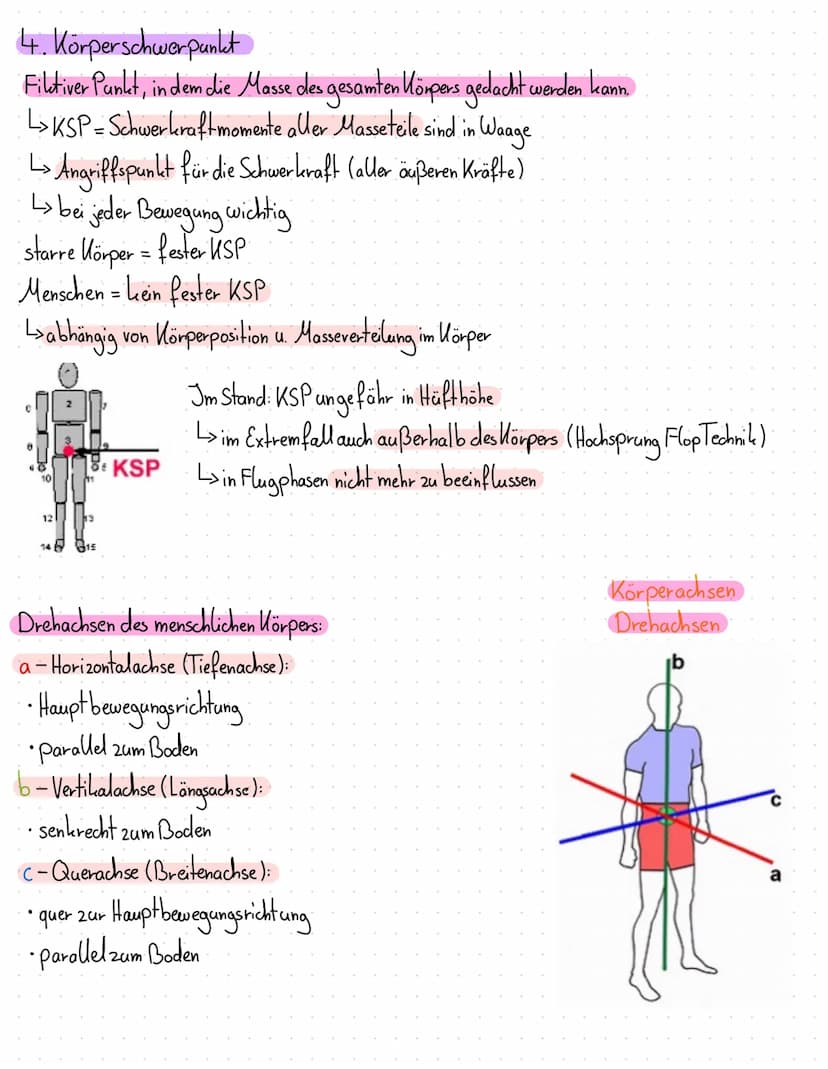 4. Körperschwerpunkt
Fiktiver Punkt, in dem die Masse des gesamten Körpers gedacht werden kann.
↳ KSP = Schwerkraftmomente aller Masseteile sind in Waage
↳ Angriffspunkt für die Schwerkraft (aller äußeren Kräfte)
↳ bei jeder Bewegung wichtig
starre Körper = fester KSP
Menschen = kein fester KSP
↳ abhängig von Körperposition u. Masseverteilung im Körper
Im Stand: KSP ungefähr in Hüfthöhe
↳ im Extremfall auch außerhalb des Körpers (Hochsprung Flop Technik)
↳ in Flugphasen nicht mehr zu beeinflussen
2
3
KSP
10 11
12 13
14 15
Körperachsen
Drehachsen
Drehachsen des menschlichen Körpers:
a - Horizontalachse (Tiefenachse):
• Hauptbewegungsrichtung
• parallel zum Boden
b - Vertikalachse (Längsachse):
• senkrecht zum Boden
c - Querachse (Breitenachse):
• quer zur Hauptbewegungsrichtung
• parallel zum Boden
b
c
a